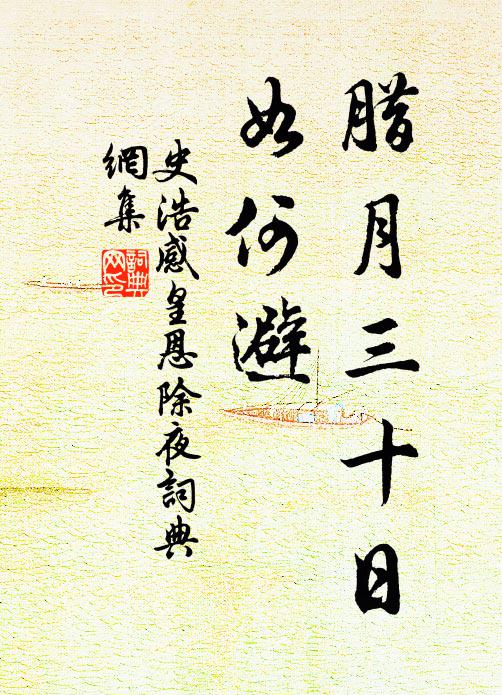 腊月三十日
如何避
史浩感皇恩除夜詞典
網集
詞典
网印